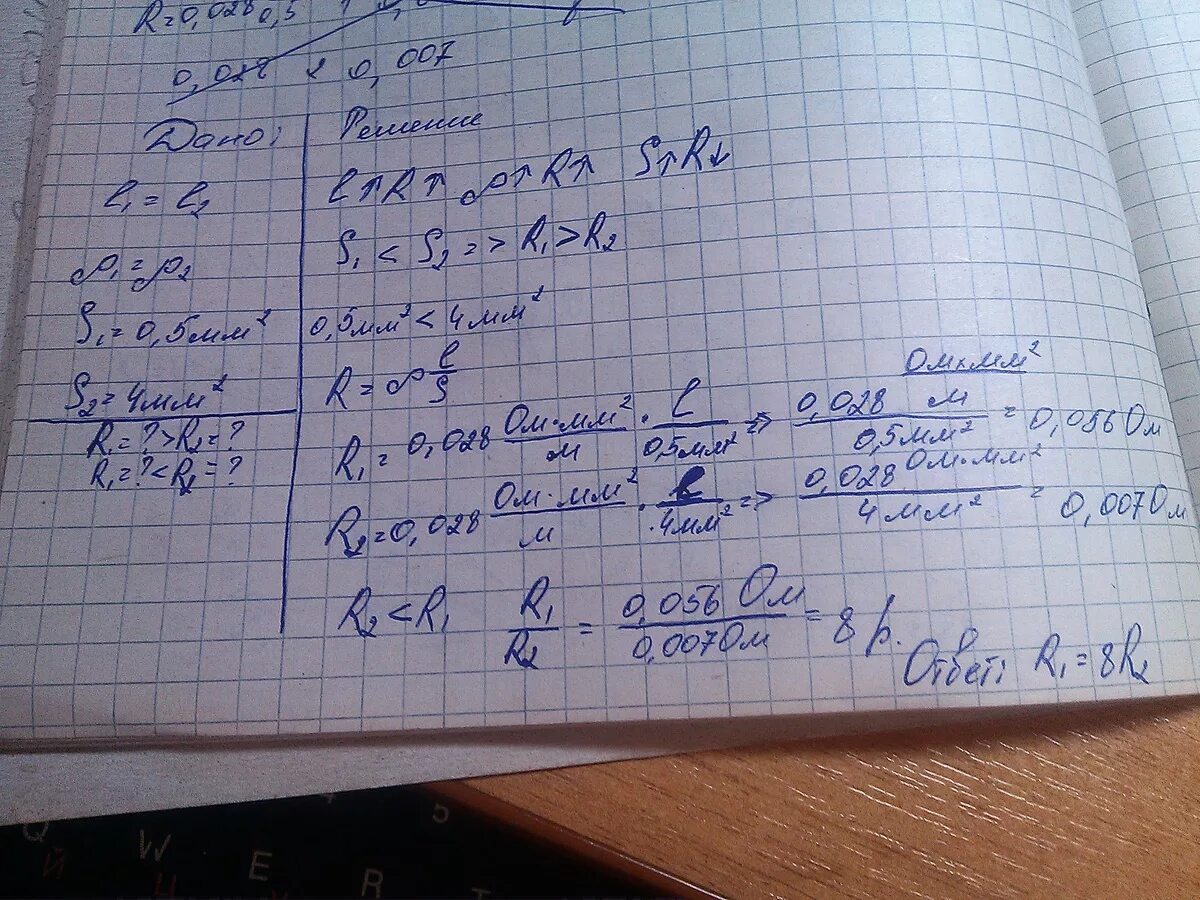 R=0,028 0,5
0,028 2 0,007
Дано:
l₁ = l₂
ρ₁ = ρ₂
S₁ = 0,5мм²
S₂ = 4мм²
R₁ = ? > R₂ = ?
R₁ = ? < R₂ = ?
Решение
l↑R↑ ρ↑R↑ S↑R↓
S₁ < S₂ => R₁ > R₂
0,5мм² < 4мм²
R = ρ l/S
R₁ = 0,028 Ом·мм²/м · l/0,5мм² => 0,028 Ом×мм²/м / 0,5мм² = 0,056 Ом
R₂ = 0,028 Ом·мм²/м · l/·4мм² => 0,028 Ом·мм² / 4мм² = 0,007 Ом
R₂ < R₁ R₁/R₂ = 0,056 Ом/0,007 Ом = 8 р.
Ответ: R₁ = 8R₂
Q W E R T
Й Ц